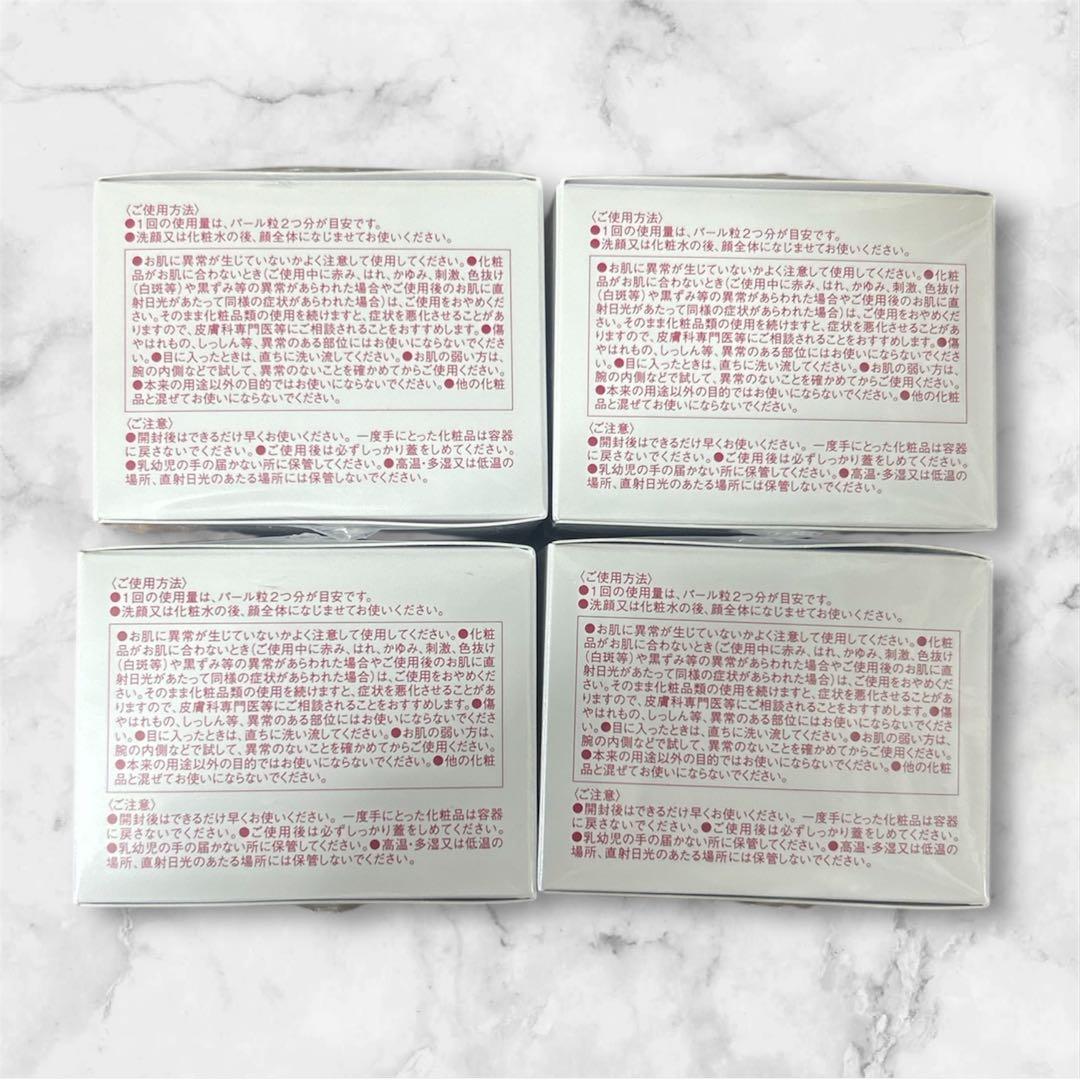 〈ご使用方法〉
●1回の使用量は、パール粒2つ分が目安です。
●洗顔又は化粧水の後、顔全体になじませてお使いください。
●お肌に異常が生じていないかよく注意して使用してください。●化粧
品がお肌に合わないとき(ご使用中に赤み、はれ、かゆみ、刺激、色抜け
(白斑等)や黒ずみ等の異常があらわれた場合やご使用後のお肌に直
射日光があたって同様の症状があらわれた場合)は、ご使用をおやめくだ
さい。そのまま化粧品類の使用を続けますと、症状を悪化させることがあ
りますので、皮膚科専門医等にご相談されることをおすすめします。●傷
やはれもの、しっしん等、異常のある部位にはお使いにならないでくださ
い。●目に入ったときは、直ちに洗い流してください。●お肌の弱い方は、
腕の内側などで試して、異常のないことを確かめてからご使用ください。
●本来の用途以外の目的ではお使いにならないでください。●他の化粧
品と混ぜてお使いにならないでください。
〈ご注意〉
●開封後はできるだけ早くお使いください。一度手にとった化粧品は容器
に戻さないでください。●ご使用後は必ずしっかり蓋をしめてください。
●乳幼児の手の届かない所に保管してください。●高温・多湿又は低温の
場所、直射日光のあたる場所には保管しないでください。
〈ご使用方法〉
●1回の使用量は、パール粒2つ分が目安です。
●洗顔又は化粧水の後、顔全体になじませてお使いください。
●お肌に異常が生じていないかよく注意して使用してください。●化粧
品がお肌に合わないとき(ご使用中に赤み、はれ、かゆみ、刺激、色抜け
(白斑等)や黒ずみ等の異常があらわれた場合やご使用後のお肌に直
射日光があたって同様の症状があらわれた場合)は、ご使用をおやめくだ
さい。そのまま化粧品類の使用を続けますと、症状を悪化させることがあ
りますので、皮膚科専門医等にご相談されることをおすすめします。●傷
やはれもの、しっしん等、異常のある部位にはお使いにならないでくださ
い。●目に入ったときは、直ちに洗い流してください。●お肌の弱い方は、
腕の内側などで試して、異常のないことを確かめてからご使用ください。
●本来の用途以外の目的ではお使いにならないでください。●他の化粧
品と混ぜてお使いにならないでください。
〈ご注意〉
●開封後はできるだけ早くお使いください。一度手にとった化粧品は容器
に戻さないでください。●ご使用後は必ずしっかり蓋をしめてください。
●乳幼児の手の届かない所に保管してください。●高温・多湿又は低温の
場所、直射日光のあたる場所には保管しないでください。
〈ご使用方法〉
●1回の使用量は、パール粒2つ分が目安です。
●洗顔又は化粧水の後、顔全体になじませてお使いください。
●お肌に異常が生じていないかよく注意して使用してください。●化粧
品がお肌に合わないとき(ご使用中に赤み、はれ、かゆみ、刺激、色抜け
(白斑等)や黒ずみ等の異常があらわれた場合やご使用後のお肌に直
射日光があたって同様の症状があらわれた場合)は、ご使用をおやめくだ
さい。そのまま化粧品類の使用を続けますと、症状を悪化させることがあ
りますので、皮膚科専門医等にご相談されることをおすすめします。●傷
やはれもの、しっしん等、異常のある部位にはお使いにならないでくださ
い。●目に入ったときは、直ちに洗い流してください。●お肌の弱い方は、
腕の内側などで試して、異常のないことを確かめてからご使用ください。
●本来の用途以外の目的ではお使いにならないでください。●他の化粧
品と混ぜてお使いにならないでください。
〈ご注意〉
●開封後はできるだけ早くお使いください。一度手にとった化粧品は容器
に戻さないでください。●ご使用後は必ずしっかり蓋をしめてください。
●乳幼児の手の届かない所に保管してください。●高温・多湿又は低温の
場所、直射日光のあたる場所には保管しないでください。
〈ご使用方法〉
●1回の使用量は、パール粒2つ分が目安です。
●洗顔又は化粧水の後、顔全体になじませてお使いください。
●お肌に異常が生じていないかよく注意して使用してください。●化粧
品がお肌に合わないとき(ご使用中に赤み、はれ、かゆみ、刺激、色抜け
(白斑等)や黒ずみ等の異常があらわれた場合やご使用後のお肌に直
射日光があたって同様の症状があらわれた場合)は、ご使用をおやめくだ
さい。そのまま化粧品類の使用を続けますと、症状を悪化させることがあ
りますので、皮膚科専門医等にご相談されることをおすすめします。●傷
やはれもの、しっしん等、異常のある部位にはお使いにならないでくださ
い。●目に入ったときは、直ちに洗い流してください。●お肌の弱い方は、
腕の内側などで試して、異常のないことを確かめてからご使用ください。
●本来の用途以外の目的ではお使いにならないでください。●他の化粧
品と混ぜてお使いにならないでください。
〈ご注意〉
●開封後はできるだけ早くお使いください。一度手にとった化粧品は容器
に戻さないでください。●ご使用後は必ずしっかり蓋をしめてください。
●乳幼児の手の届かない所に保管してください。●高温・多湿又は低温の
場所、直射日光のあたる場所には保管しないでください。